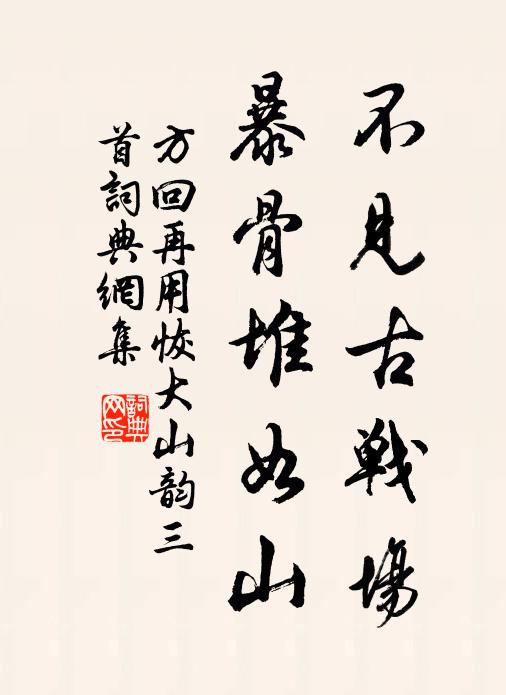 不見古戰場
暴骨堆如山
方回再用恢大山韵三
首詞典網集
詞典网印